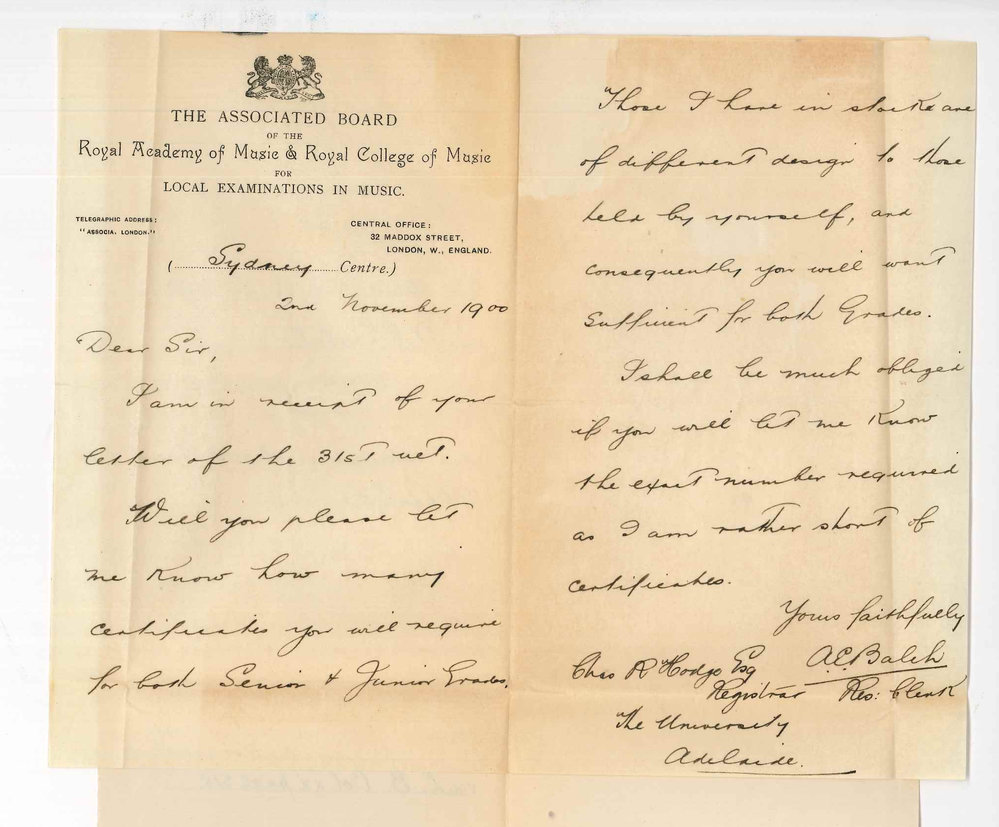 THE ASSOCIATED BOARD
OF THE
Royal Academy of Music & Royal College of Music
FOR
LOCAL EXAMINATIONS IN MUSIC.
TELEGRAPHIC ADDRESS:
"ASSOCIA, LONDON."
CENTRAL OFFICE:
32 MADDOX STREET,
LONDON, W., ENGLAND.
(Sydney Centre.)
2nd November 1900
Dear Sir,
I am in receipt of your
letter of the 31st ult.
Will you please let
me know how many
certificates you will require
for both Senior & Junior Grades.
Those I have in stock are
of different design to those
held by yourself, and
consequently you will want
sufficient for both Grades.
I shall be much obliged
if you will let me know
the exact number required
as I am rather short of
certificates.
Yours faithfully
A.E. Balch
Res: Clerk
Chas R Hodge Esq
Registrar
The University
Adelaide.